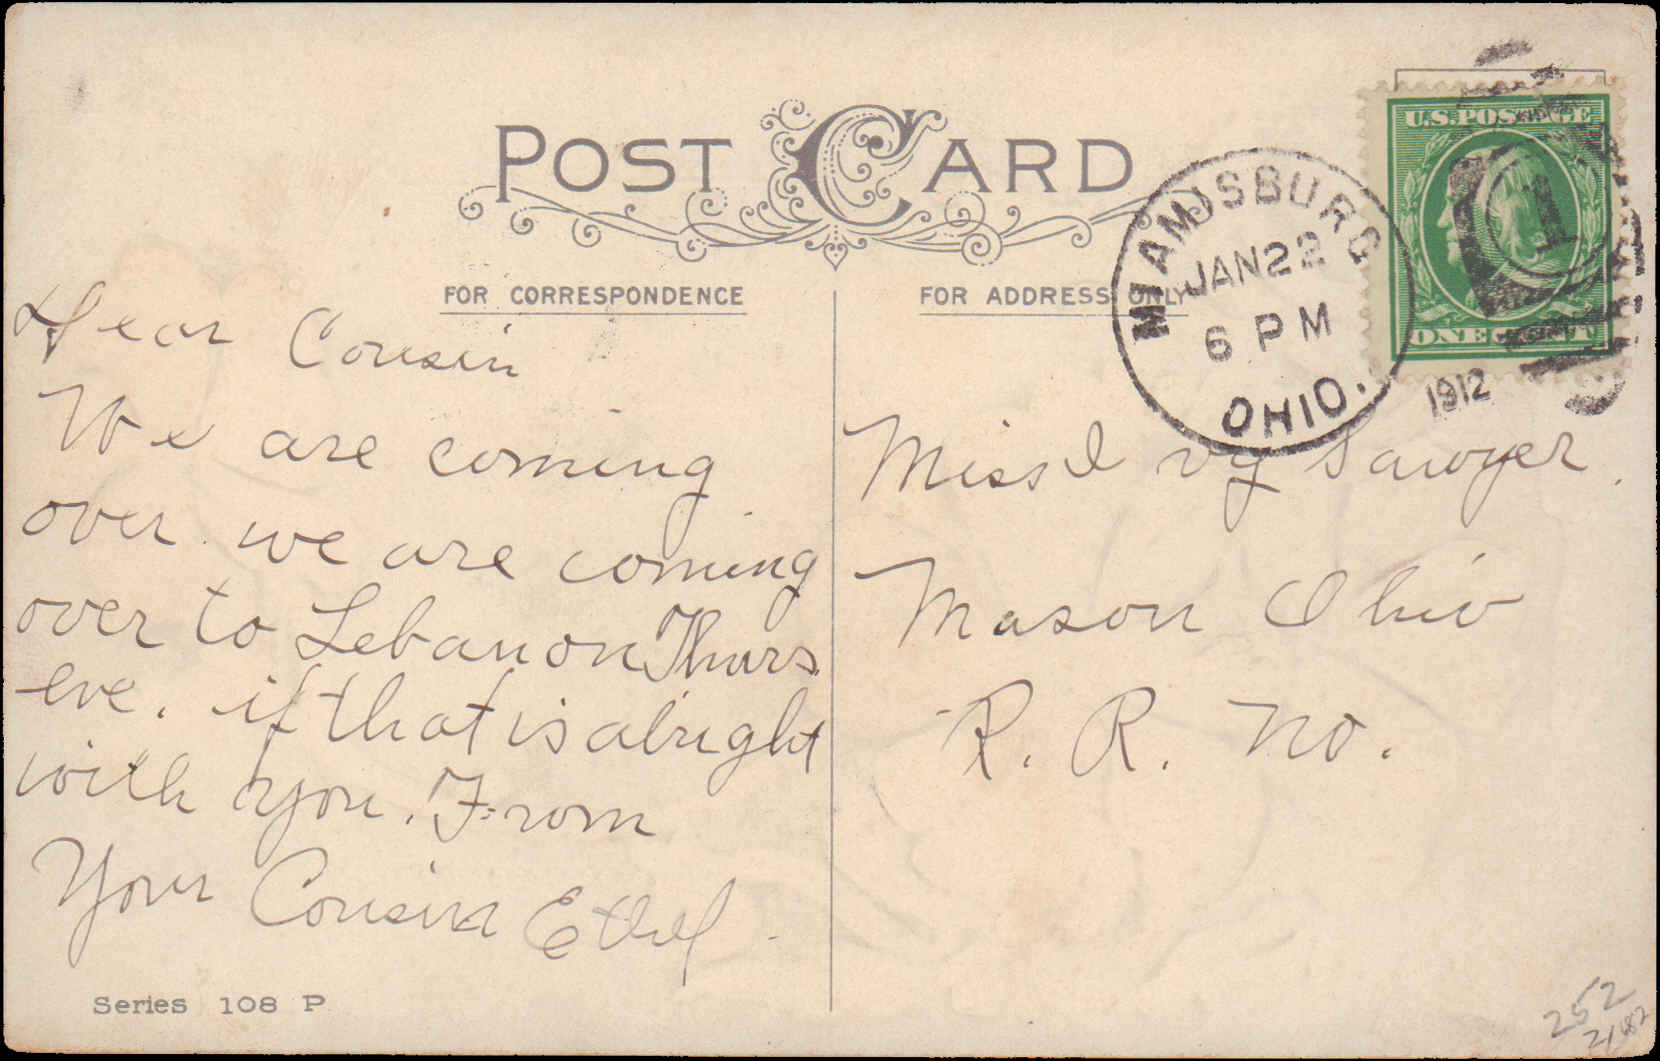 POST CARD
FOR CORRESPONDENCE
FOR ADDRESS ONLY
U.S. POSTAGE
1
ONE CENT
MIAMISBURG
JAN 22
6 PM
1912
OHIO.
Dear Cousin
We are coming
over we are coming
over to Lebanon Thurs
eve. if that is alright
with you. From
Your Cousin Ethel
Miss Ivy Sawyer.
Mason Ohio
R. R. No.
Series 108 P
252